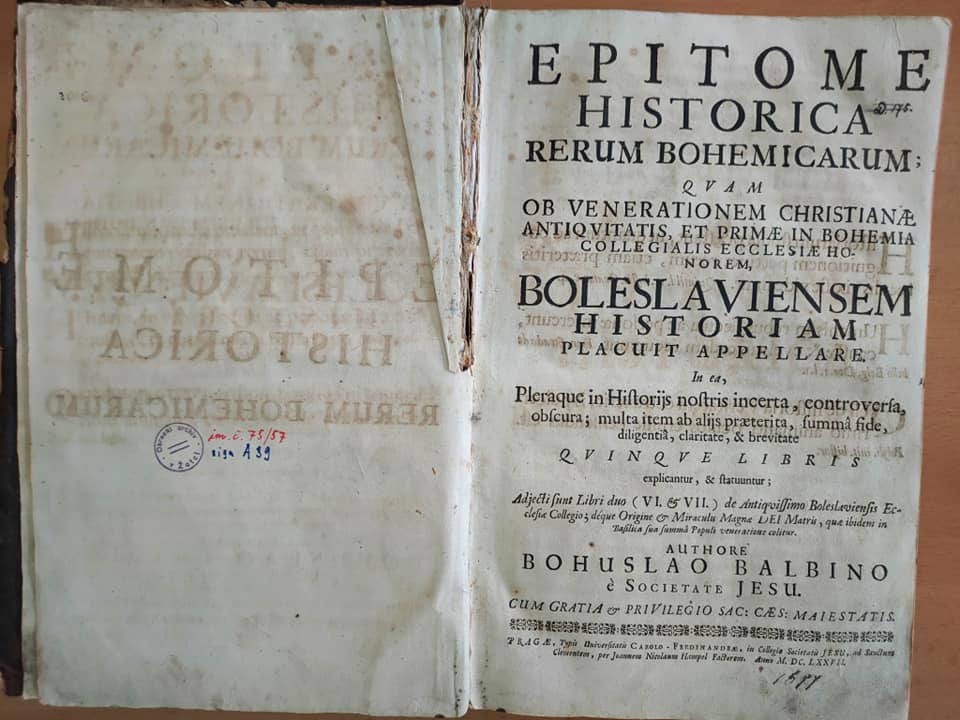 306
Okresní archiv
v Žatci
inv. č. 75/57
sign A 39
EPITOME
HISTORICA
RERUM BOHEMICARUM;
QVAM
OB VENERATIONEM CHRISTIANÆ
ANTIQVITATIS, ET PRIMÆ IN BOHEMIA
COLLEGIALIS ECCLESIÆ HO-
NOREM,
BOLESLAVIENSEM
HISTORIAM
PLACUIT APPELLARE.
In ea,
Pleraque in Historijs nostris incerta, controversa,
obscura; multa item ab alijs præterita, summâ fide,
diligentiâ, claritate, & brevitate
QVINQVE LIBRIS
explicantur, & statuuntur;
Adjecti sunt Libri duo (VI. & VII.) de Antiqvissimo Boleslaviensis Ec-
clesiæ Collegio; déque Origine & Miraculis Magnæ DEI Matris, quæ ibidem in
Basilica sua summâ Populi veneratione colitur.
AUTHORE
BOHUSLAO BALBINO
è SOCIETATE JESU.
CUM GRATIA & PRIVILEGIO SAC: CÆS: MAIESTATIS.
PRAGÆ, Typis Universitatis CAROLO-FERDINANDEÆ, in Collegio Societatis JESU, ad Sanctum
Clementem, per Joannem Nicolaum Hampel Factorem. Anno M. DC. LXXVII.
1677